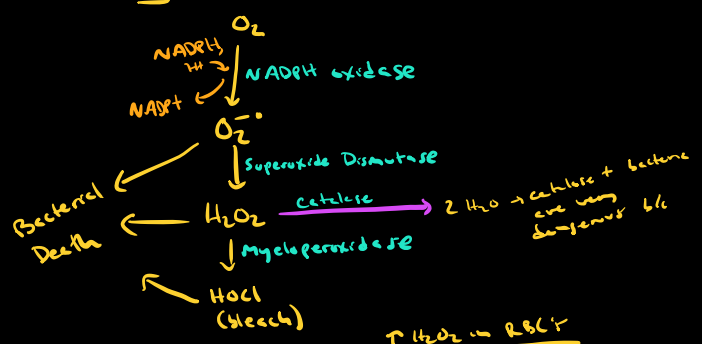 O2
NADPH,
H+
NADPH oxidase
NADP+
O2-•
Superoxide Dismutase
Bacterial
Death
H2O2
catalase
2 H2O → catalase + bacteria
are very
dangerous b/c
Myeloperoxidase
HOCl
(bleach)
↑ H2O2 in RBC's